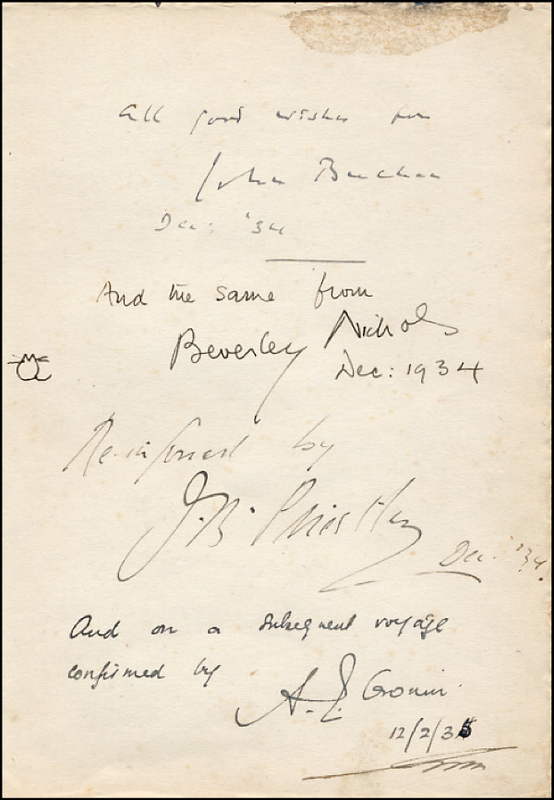 All good wishes from
John Buchan
Dec: '34
And the same from
Beverley Nichols
Dec: 1934
Re-inforced by
J.B. Priestley
Dec. '34.
And on a subsequent voyage
confirmed by
A. J. Cronin.
12/2/35